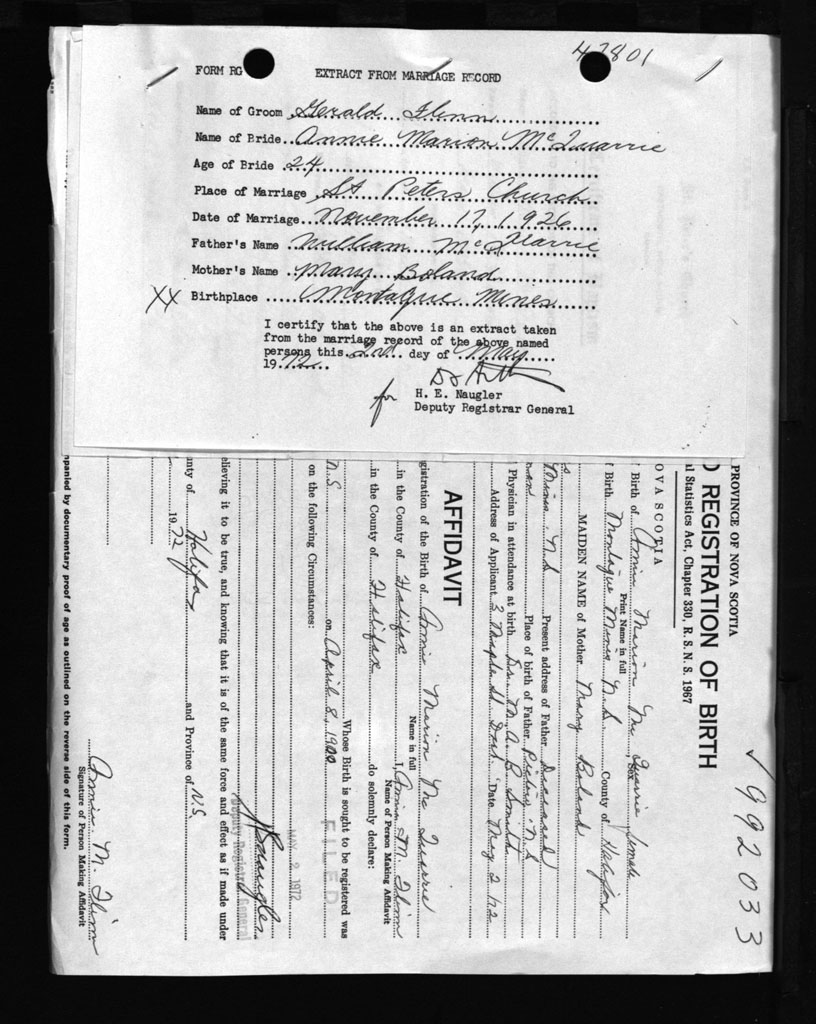 47801
FORM RG EXTRACT FROM MARRIAGE RECORD
Name of Groom Gerald Flinn
Name of Bride Annie Marion McQuarrie
Age of Bride 24
Place of Marriage St Peters Church
Date of Marriage November 17, 1926
Father's Name William Mc
Mother's Name Mary Boland
XX Birthplace Montague Mines
I certify that the above is an extract taken
from the marriage record of the above named
persons this 2nd day of May
1972
for H. E. Naugler
Deputy Registrar General
992033
PROVINCE OF NOVA SCOTIA
D REGISTRATION OF BIRTH
l Statistics Act, Chapter 330, R. S. N. S. 1967
OVA SCOTIA
Birth of Annie Marion Mc Quarrie Sex Female
Print Name in full
Birth Montague Mines N.S. County of Halifax
MAIDEN NAME of Mother Mary Boland
Mines, N.S. Present address of Father Deceased
Place of birth of Father Pictou, N.S.
Physician in attendance at birth Dr. M.A.B. Smith
Address of Applicant 3 Maple St Dart. Date May 2/72
AFFIDAVIT
gistration of the Birth of Annie Marion Mc Quarrie
Name in full
in the County of Halifax I, Annie M. Flinn
Name of Person Making Affidavit
in the County of Halifax do solemnly declare:
Whose Birth is sought to be registered was
N.S. on April 8, 1900
on the following Circumstances:
FILED
MAY 2 1972
Deputy Registrar General
elieving it to be true, and knowing that it is of the same force and effect as if made under
unty of Halifax and Province of N.S.
1972
Annie M. Flinn
Signature of Person Making Affidavit
mpanied by documentary proof of age as outlined on the reverse side of this form.